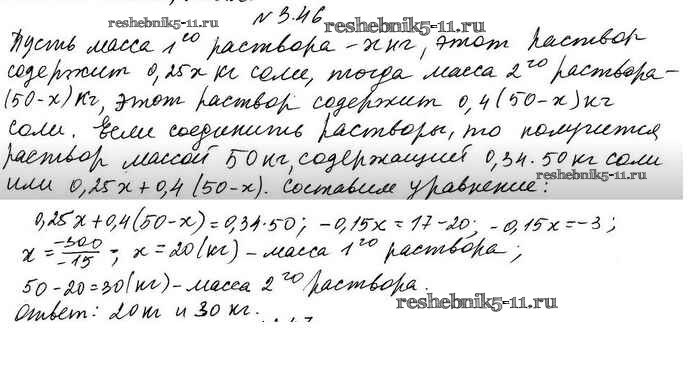 №3.46 reshebnik5-11.ru
Пусть масса 1го раствора – x кг, этот раствор
содержит 0,25x кг соли, тогда масса 2го раствора –
(50-x) кг, этот раствор содержит 0,4(50-x) кг
соли. Если соединить растворы, то получится
раствор массой 50 кг, содержащий 0,34·50 кг соли
reshebnik5-11.ru
или 0,25x+0,4(50-x). Составим уравнение:
0,25x+0,4(50-x)=0,34·50; -0,15x=17-20; -0,15x=-3;
x=-300/-15; x=20(кг) – масса 1го раствора;
50-20=30(кг) – масса 2го раствора.
reshebnik5-11.ru
Ответ: 20 кг и 30 кг.